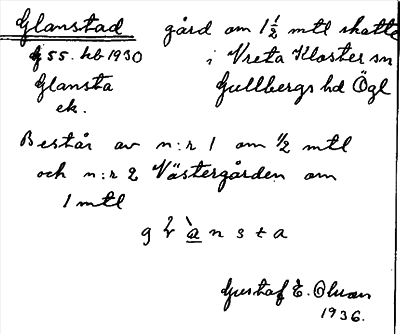 Glanstad gård om 1 1/2 mtl skatte
g 55. hb 1930 i Vreta Kloster sn
Glansta Gullbergs hd Ögl
ek.
Består av n:r 1 om 1/2 mtl
och n:r 2 Västergården om
1 mtl
a n s t a
Gustaf E. Olsson
1936.